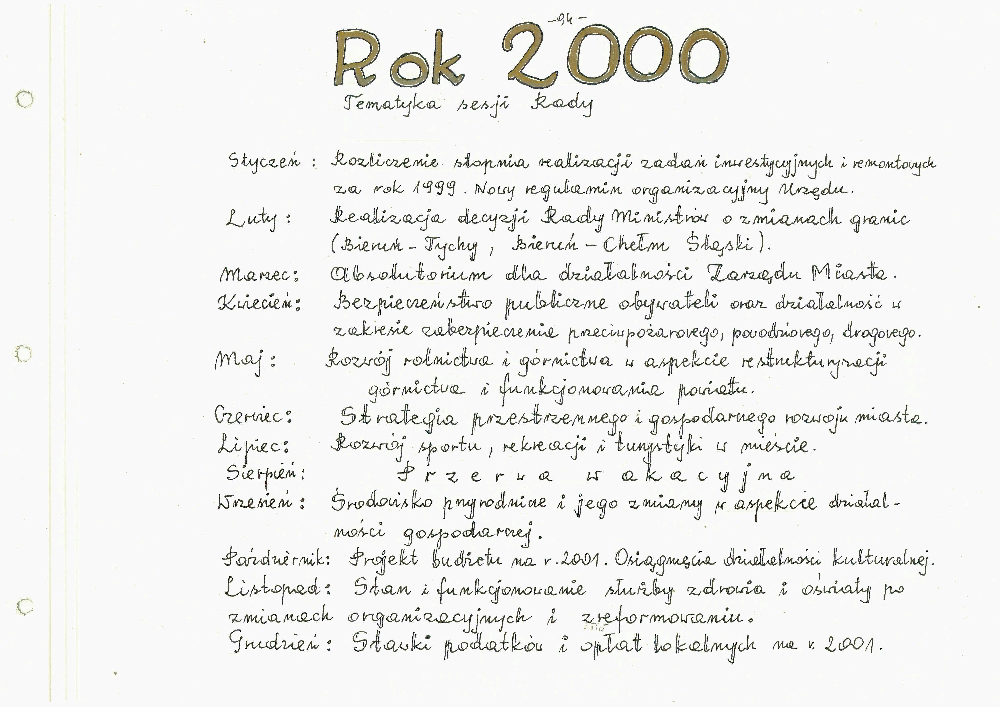 -94-
Rok 2000
Tematyka sesji Rady
Styczeń : Rozliczenie stopnia realizacji zadań inwestycyjnych i remontowych
za rok 1999. Nowy regulamin organizacyjny Urzędu.
Luty : Realizacja decyzji Rady Ministrów o zmianach granic
(Bieruń - Tychy, Bieruń - Chełm Śląski).
Marzec: Absolutorium dla działalności Zarządu Miasta.
Kwiecień: Bezpieczeństwo publiczne obywateli oraz działalność w
zakresie zabezpieczenia przeciwpożarowego, powodziowego, drogowego.
Maj : Rozwój rolnictwa i górnictwa w aspekcie restrukturyzacji
górnictwa i funkcjonowania powiatu.
Czerwiec: Strategia przestrzennego i gospodarnego rozwoju miasta.
Lipiec: Rozwój sportu, rekreacji i turystyki w mieście.
Sierpień: Przerwa wakacyjna
Wrzesień : Środowisko przyrodnicze i jego zmiany w aspekcie działal-
ności gospodarczej.
Październik: Projekt budżetu na r. 2001. Osiągnięcia działalności kulturalnej.
Listopad: Stan i funkcjonowanie służby zdrowia i oświaty po
zmianach organizacyjnych i zreformowaniu.
Grudzień: Stawki podatków i opłat lokalnych na r. 2001.